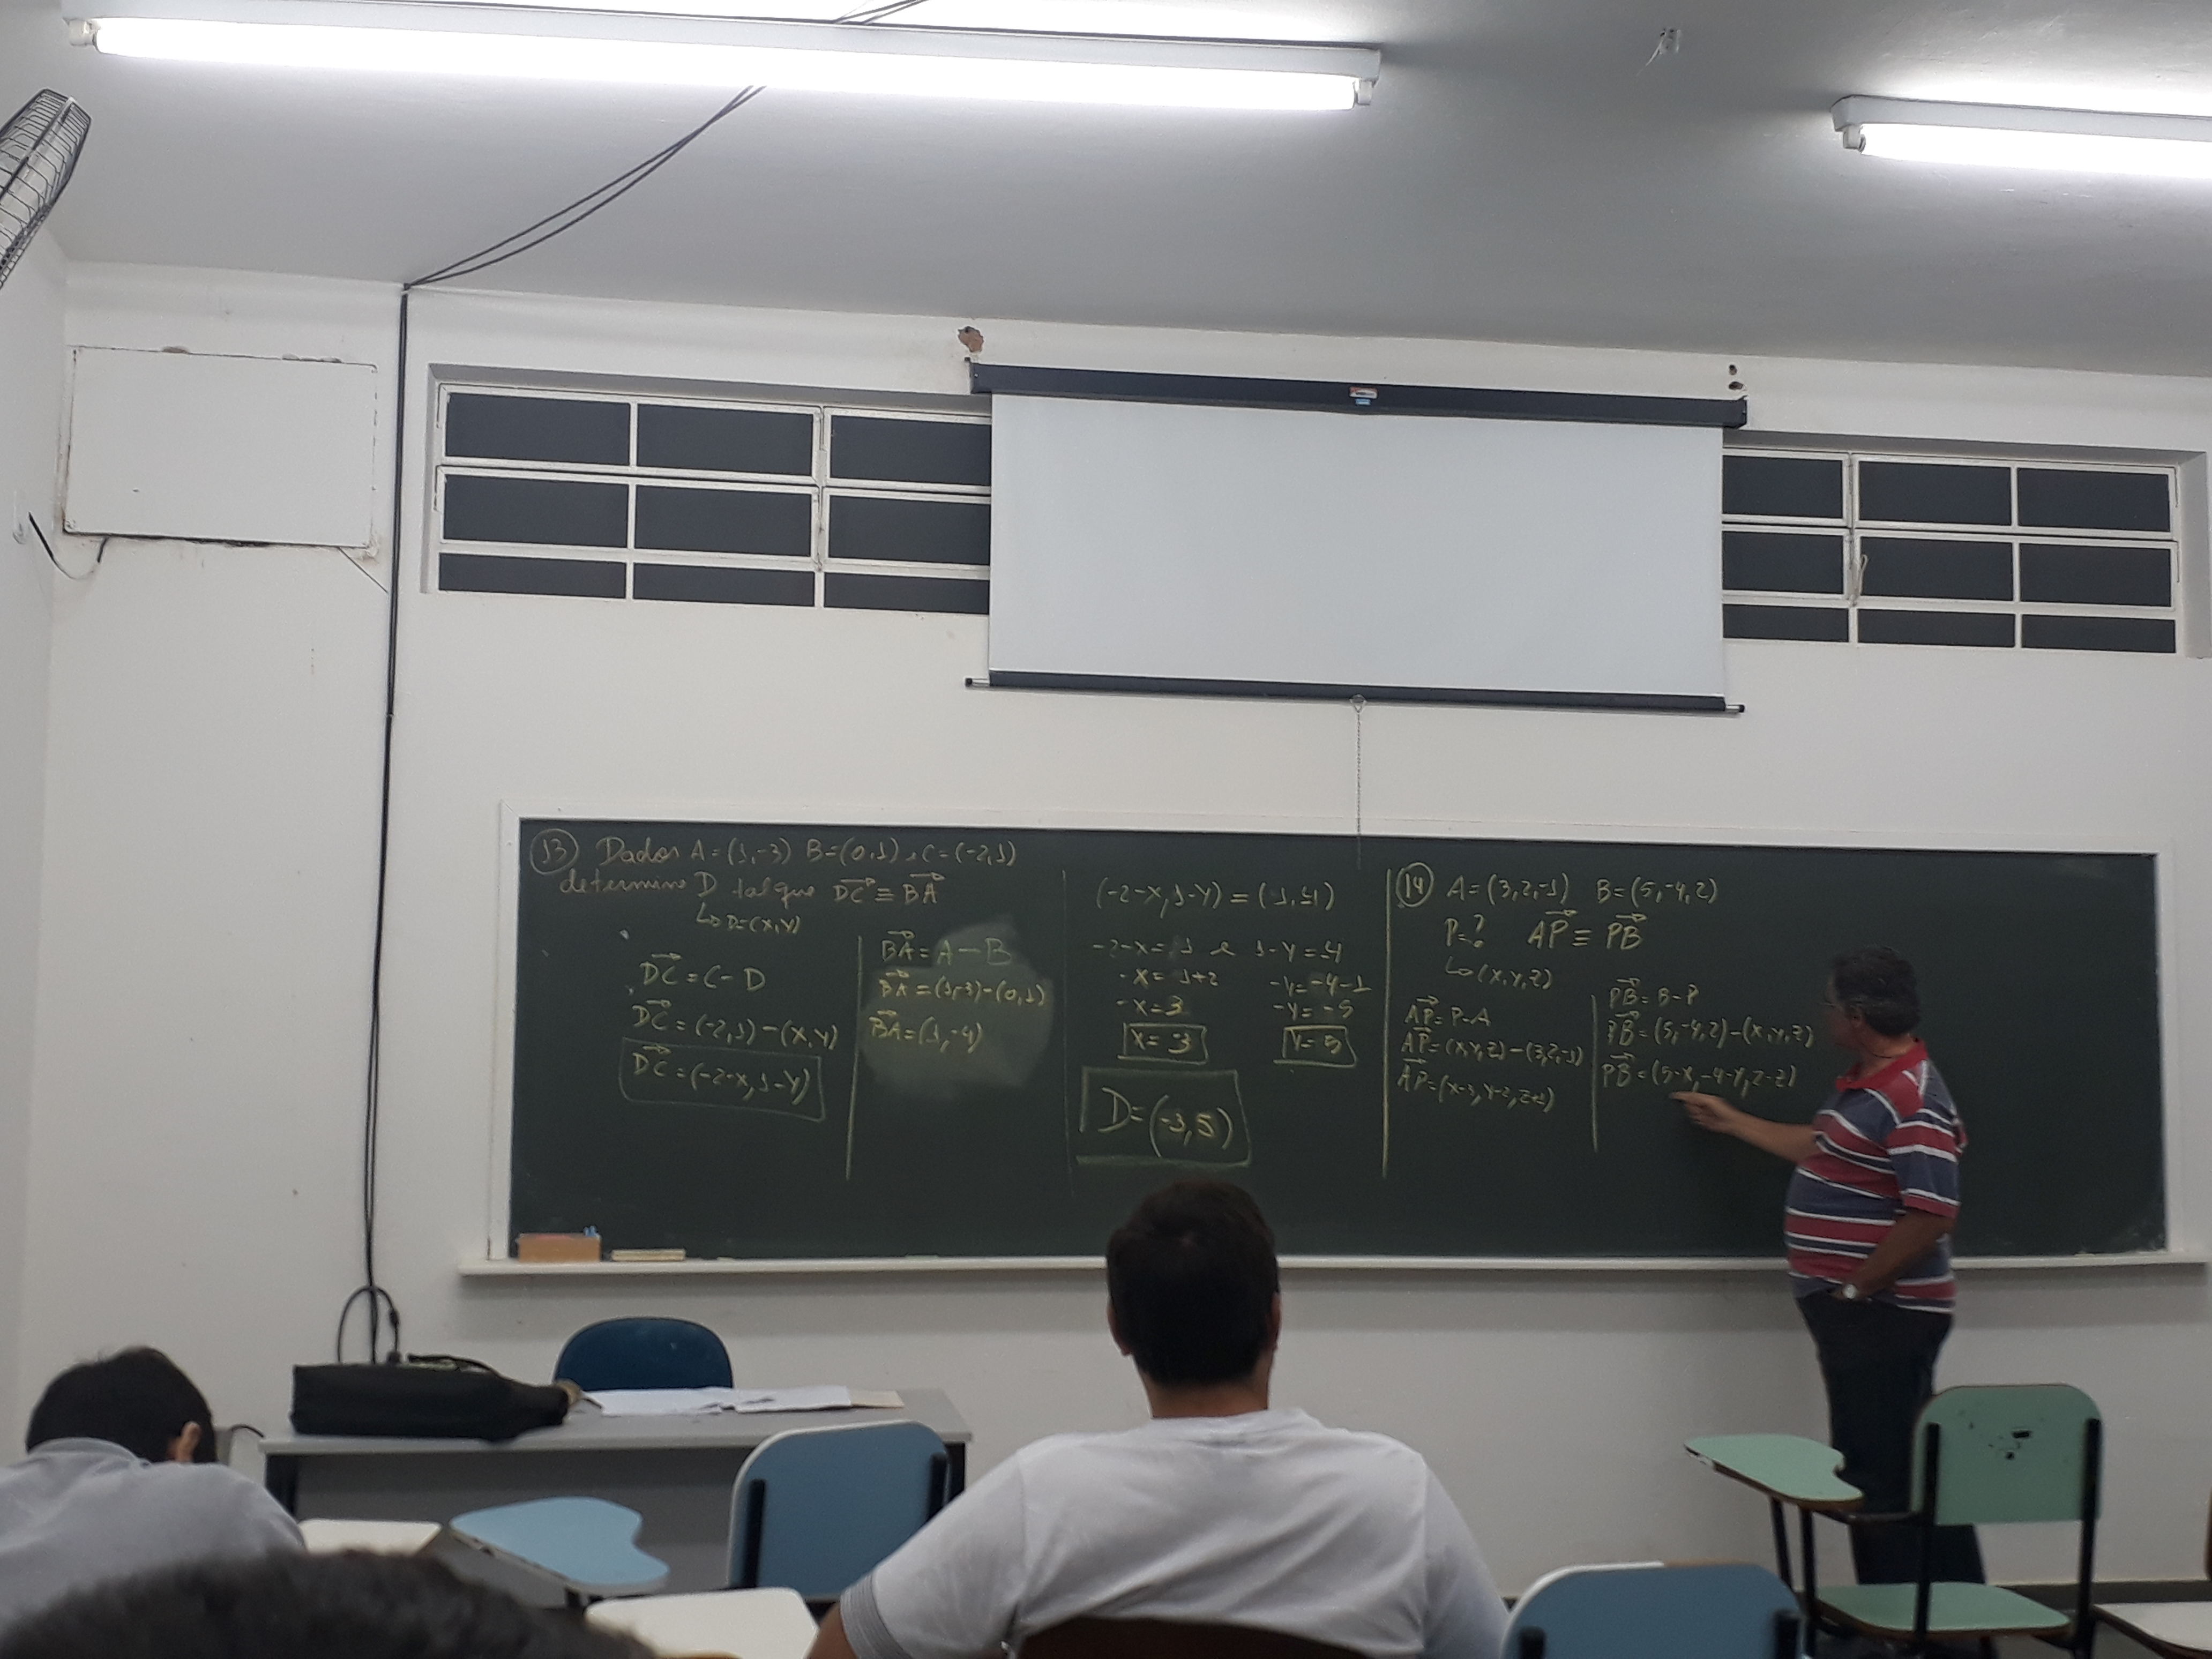 13 Dados A = (1,-3) B = (0,1) e C = (-2,1)
determine D tal que DC ≡ BA
↳ D = (x,y)
DC = C - D
DC = (-2,1) - (x,y)
DC = (-2-x, 1-y)
BA = A - B
BA = (1,-3) - (0,1)
BA = (1,-4)
(-2-x, 1-y) = (1,-4)
-2-x = 1 e 1-y = -4
-x = 1+2 -y = -4-1
-x = 3 -y = -5
x = -3 y = 5
D = (-3,5)
14 A = (3,2,-1) B = (5,-4,2)
P = ? AP ≡ PB
↳ (x,y,z)
AP = P - A
AP = (x,y,z) - (3,2,-1)
AP = (x-3, y-2, z+1)
PB = B - P
PB = (5,-4,2) - (x,y,z)
PB = (5-x, -4-y, 2-z)